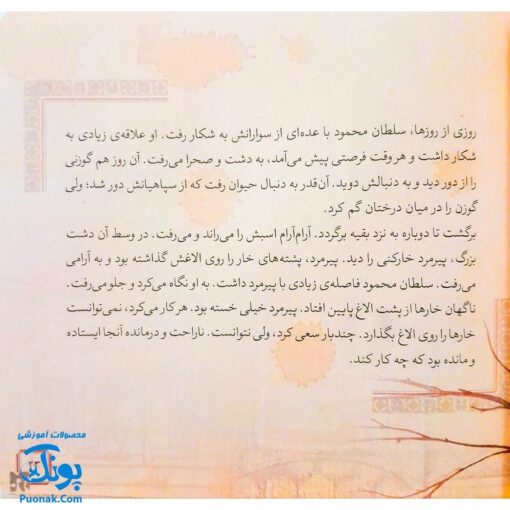 روزی از روزها، سلطان محمود با عده‌ای از سوارانش به شکار رفت. او علاقه‌ی زیادی به
شکار داشت و هر وقت فرصتی پیش می‌آمد، به دشت و صحرا می‌رفت. آن روز هم گوزنی
را از دور دید و به دنبالش دوید. آن‌قدر به دنبال حیوان رفت که از سپاهیانش دور شد؛ ولی
گوزن را در میان درختان گم کرد.
برگشت تا دوباره به نزد بقیه برگردد. آرام‌آرام اسبش را می‌راند و می‌رفت. در وسط آن دشت
بزرگ، پیرمرد خارکنی را دید. پیرمرد، پشته‌های خار را روی الاغش گذاشته بود و به آرامی
می‌رفت. سلطان محمود فاصله‌ی زیادی با پیرمرد داشت. به او نگاه می‌کرد و جلو می‌رفت.
ناگهان خارها از پشت الاغ پایین افتاد. پیرمرد خیلی خسته بود. هر کار می‌کرد، نمی‌توانست
خارها را روی الاغ بگذارد. چندبار سعی کرد، ولی نتوانست. ناراحت و درمانده آنجا ایستاده
و مانده بود که چه کار کند.
محصولات آموزشی
پونک
Puonak.Com